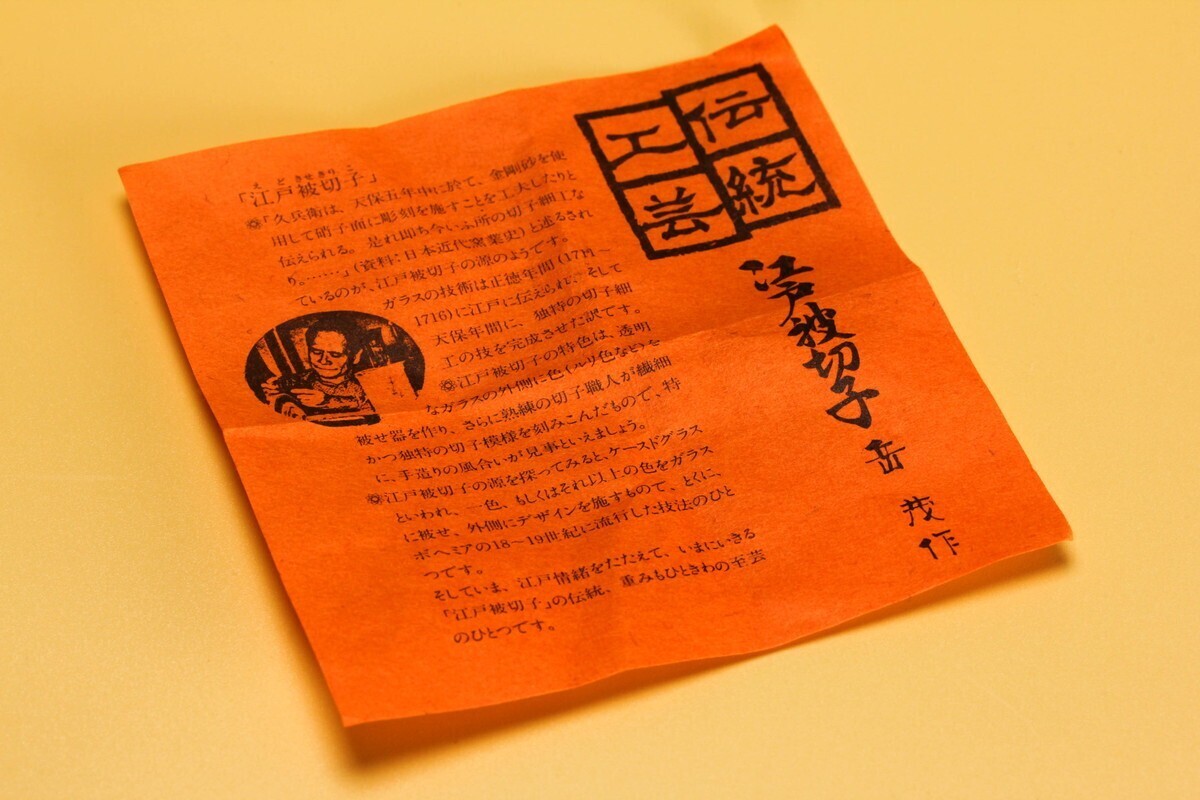 伝統
工芸
江戸被切子
岳 茂作
えどきせきりこ
「江戸被切子」
◎「久兵衛は、天保五年中に於て、金剛砂を使
用して硝子面に彫刻を施すことを工夫したりと
伝えられる。是れ即ち今いふ所の切子細工な
り。……」(資料:日本近代窯業史)と述るされ
ているのが、江戸被切子の源のようです。
ガラスの技術は正徳年間(1711〜
1716)に江戸に伝えられ、そして
天保年間に、独特の切子細
工の技を完成させた訳です。
◎江戸被切子の特色は、透明
なガラスの外側に色(ルリ色など)を
被せ器を作り、さらに熟練の切子職人が繊細
かつ独特の切子模様を刻みこんだもので、特
に、手造りの風合いが見事といえましょう。
◎江戸被切子の源を探ってみると、ケースドグラス
といわれ、一色、もしくはそれ以上の色をガラス
に被せ、外側にデザインを施すもので、とくに、
ボヘミアの18〜19世紀に流行した技法のひと
つです。
そしていま、江戸情緒をたたえて、いまにいきる
「江戸被切子」の伝統、重みもひときわの至芸
のひとつです。